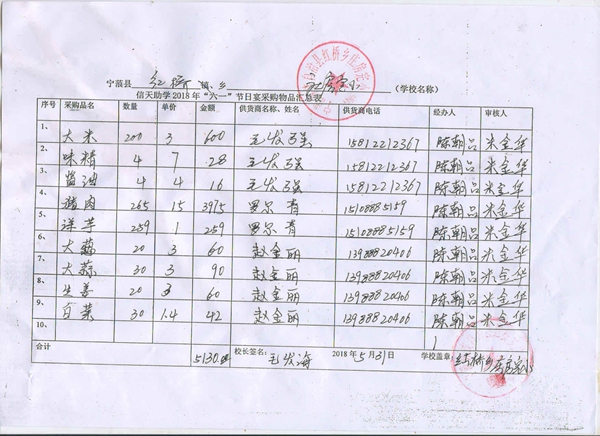 宁蒗县 红桥 镇、乡 (学校名称)
信天助学2018年“六一”节日宴采购物品汇总表
序号 采购品名 数量 单价 金额 供货商名称、姓名 供货商电话 经办人 审核人
1、 大米 200 3 600 毛发强 15812212367 陈朝品 米金华
2、 味精 4 7 28 毛发强 15812212367 陈朝品 米金华
3、 酱油 4 4 16 毛发强 15812212367 陈朝品 米金华
4、 猪肉 265 15 3975 罗尔青 15108885159 陈朝品 米金华
5、 洋芋 259 1 259 罗尔青 15108885159 陈朝品 米金华
6、 大蒜 20 3 60 赵金丽 13988820406 陈朝品 米金华
7、 大蒜 30 3 90 赵金丽 13988820406 陈朝品 米金华
8、 生姜 20 3 60 赵金丽 13988820406 陈朝品 米金华
9、 白菜 30 1.4 42 赵金丽 13988820406 陈朝品 米金华
10、
合计 5130.00 校长签名: 毛发海 2018年5月31日 学校盖章: 红桥乡